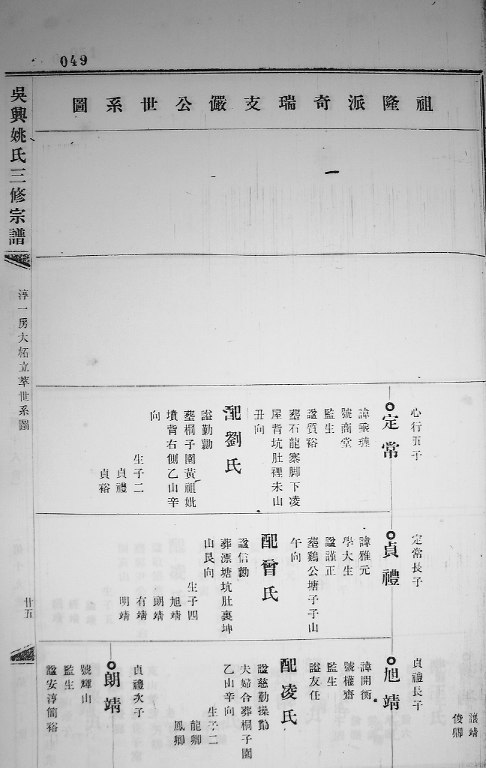 049
祖隆派奇瑞支儼公世系圖
吳興姚氏三修宗譜
淳一房大柘立莘世系圖
廿五
心行五子
定常
諱乘
號商堂
監生
諡質裕
墓石龍寨脚下凌
屋背坑肚裡未山
丑向
配劉氏
諡勤勷
墓桐子園黃祖妣
墳背右側乙山辛
向
生子二
貞禮
貞裕
定常長子
貞禮
諱雅元
學大生
諡謹正
墓鷄公塘子子山
午向
配曾氏
諡信勷
葬漂塘坑肚裏坤
山艮向
生子四
旭靖
朗靖
有靖
明靖
貞禮長子
旭靖
諱開衡
號權齋
監生
諡友任
配凌氏
諡慈勤操勤
夫婦合葬桐子園
乙山辛向
生子二
龍卿
鳳卿
貞禮次子
朗靖
號輝山
監生
諡安淳簡裕
讓靖
俊卿